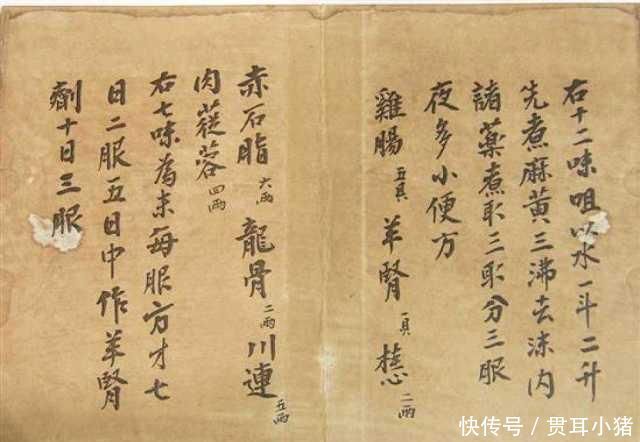 右十二味咀以水一斗二升
先煮麻黄三沸去沫内
諸藥煮取三取分三服
夜多小便方
雞腸五具 羊腎一具 桂心二兩
赤石脂六兩 龍骨二兩 川連五兩
肉蓯蓉四兩
右七味為末每服方才七
日二服五日中作羊腎
劑十日三服
快传号/贯耳小猪